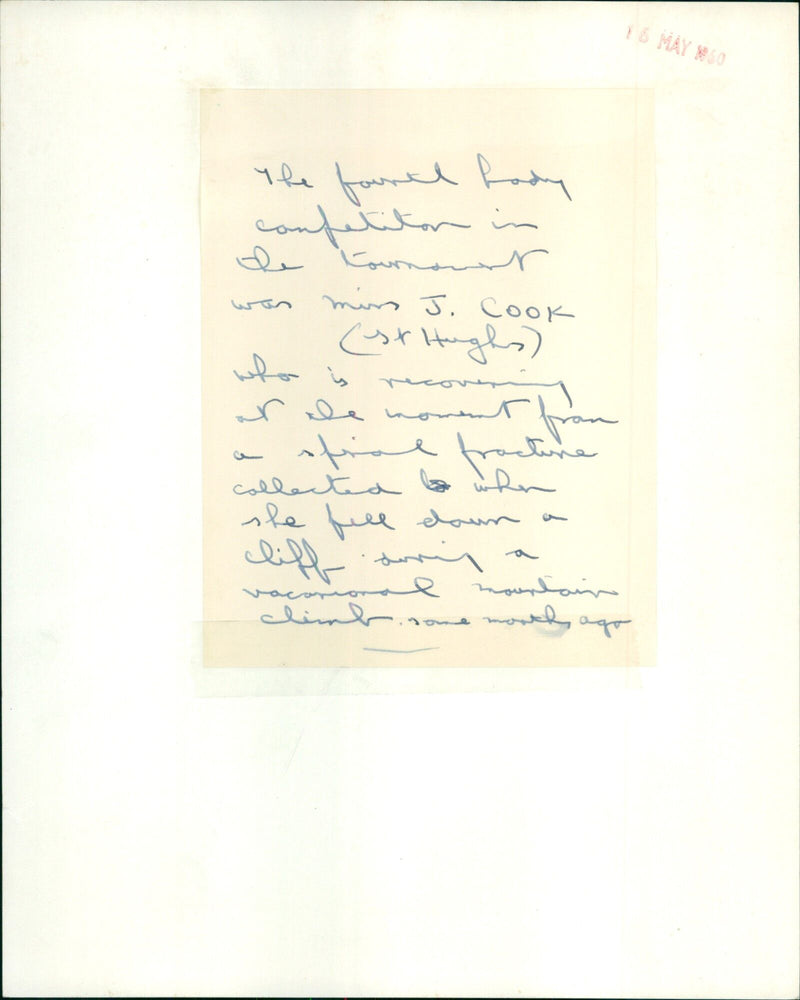 16 MAY 1960
The fourth lady
competitor in
the tournament
was Miss J. COOK
(St Hughs)
who is recovering
at the moment from
a spinal fracture
collected when
she fell down a
cliff during a
vacational mountain
climb some months ago